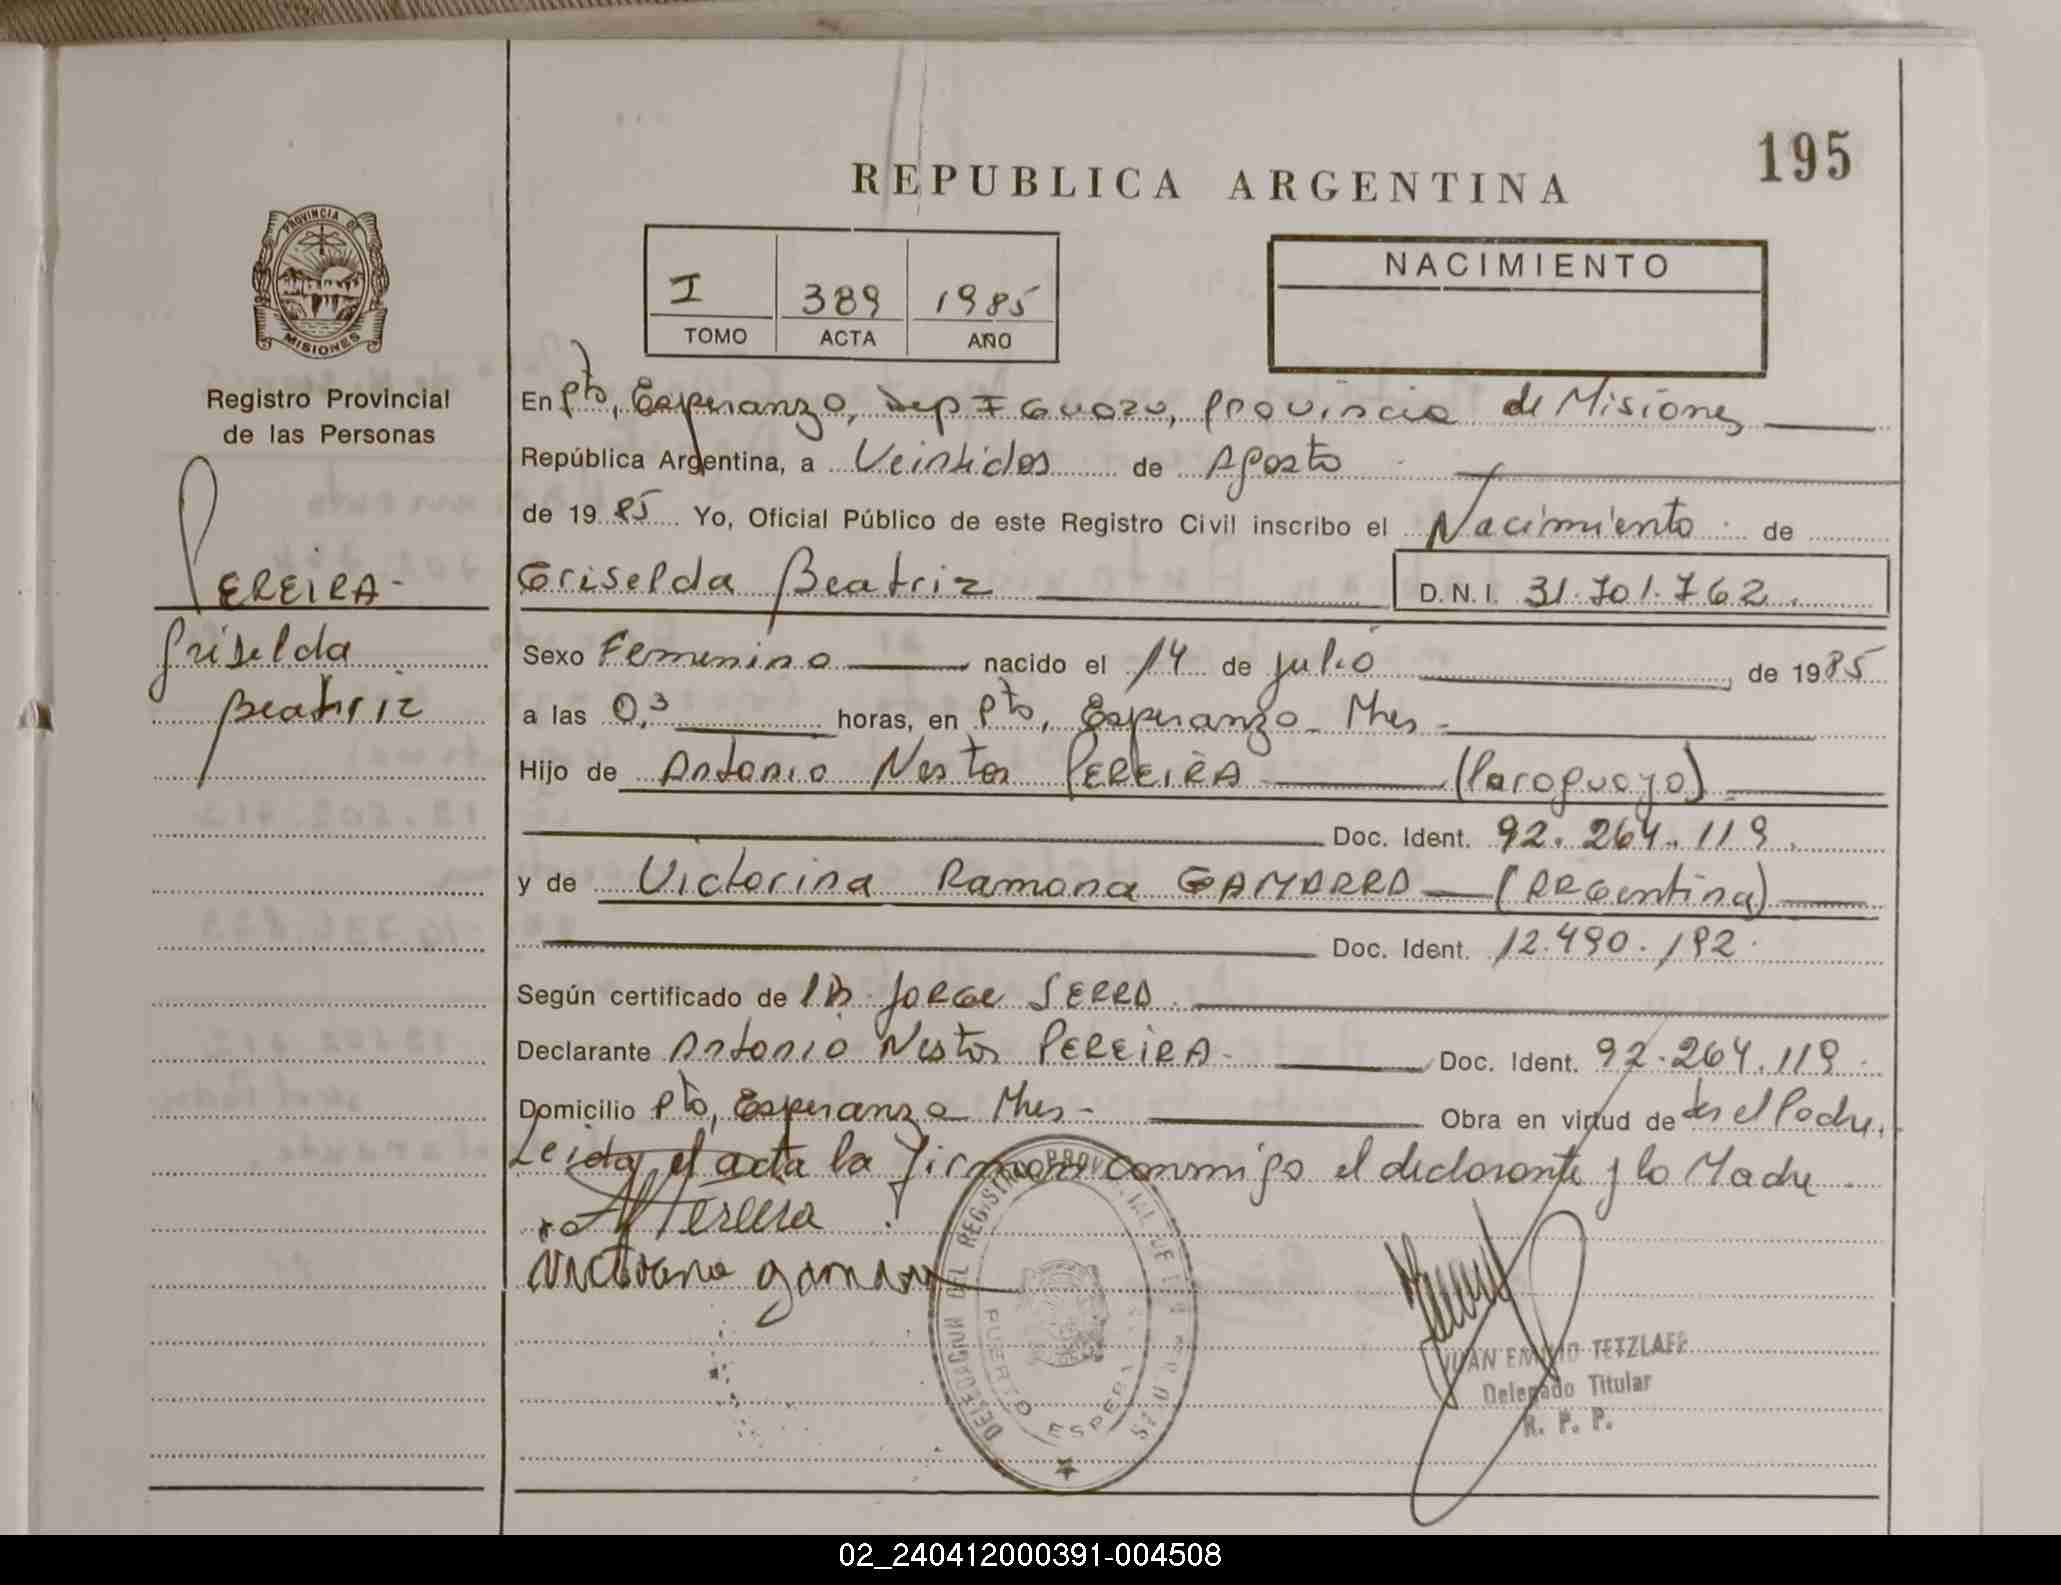 195
REPUBLICA ARGENTINA
PROVINCIA DE
MISIONES
Registro Provincial
de las Personas
PEREIRA-
Griselda
Beatriz
I 389 1985
TOMO ACTA AÑO
NACIMIENTO
En Pto, Esperanza, Dep Iguazu, provincia de Misiones
República Argentina, a Veintidos de Agosto
de 1985 Yo, Oficial Público de este Registro Civil inscribo el Nacimiento de
Griselda Beatriz D.N.I. 31.701.762.
Sexo Femenino nacido el 14 de julio, de 1985
a las 0,3 horas, en Pto, Esperanza- Mnes-
Hijo de Antonio Nestor PEREIRA (Paraguayo)
Doc. Ident. 92.264.119.
y de Victorina Ramona GAMARRA (Argentina)
Doc. Ident. 12.490.192.
Según certificado de Jorge SERRA.
Declarante Antonio Nestor PEREIRA- Doc. Ident. 92.264.119.
Domicilio Pto, Esperanza Mnes- Obra en virtud de ser el Padre.
Leida el acta la firman conmigo el declarante y la Madre.
Pereira
DELEGACION DEL REGISTRO PROVINCIAL DE LAS PERSONAS
PUERTO ESPERANZA
JUAN EMILIO TETZLAFF
Delegado Titular
R. P. P.
02_240412000391-004508